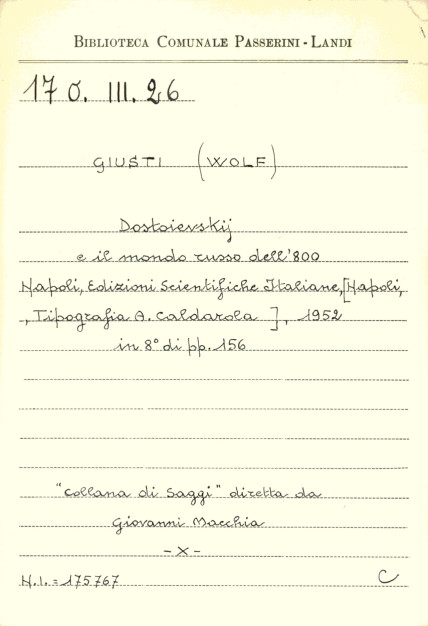 BIBLIOTECA COMUNALE PASSERINI-LANDI
17 O. III. 26
GIUSTI (WOLF)
Dostoievskij
e il mondo russo dell'800
Napoli, Edizioni Scientifiche Italiane, [Napoli,
, Tipografia A. Caldarola ], 1952
in 8° di pp. 156
"Collana di Saggi" diretta da
Giovanni Macchia
-x-
N.I. = 175767 C